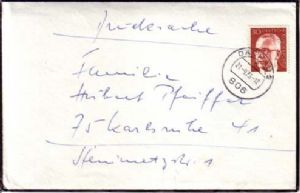 Drucksache
Familie
Herbert Pfeiffer
75 Karlsruhe 41
Steinmetzstr. 1
30
DACHAU
806